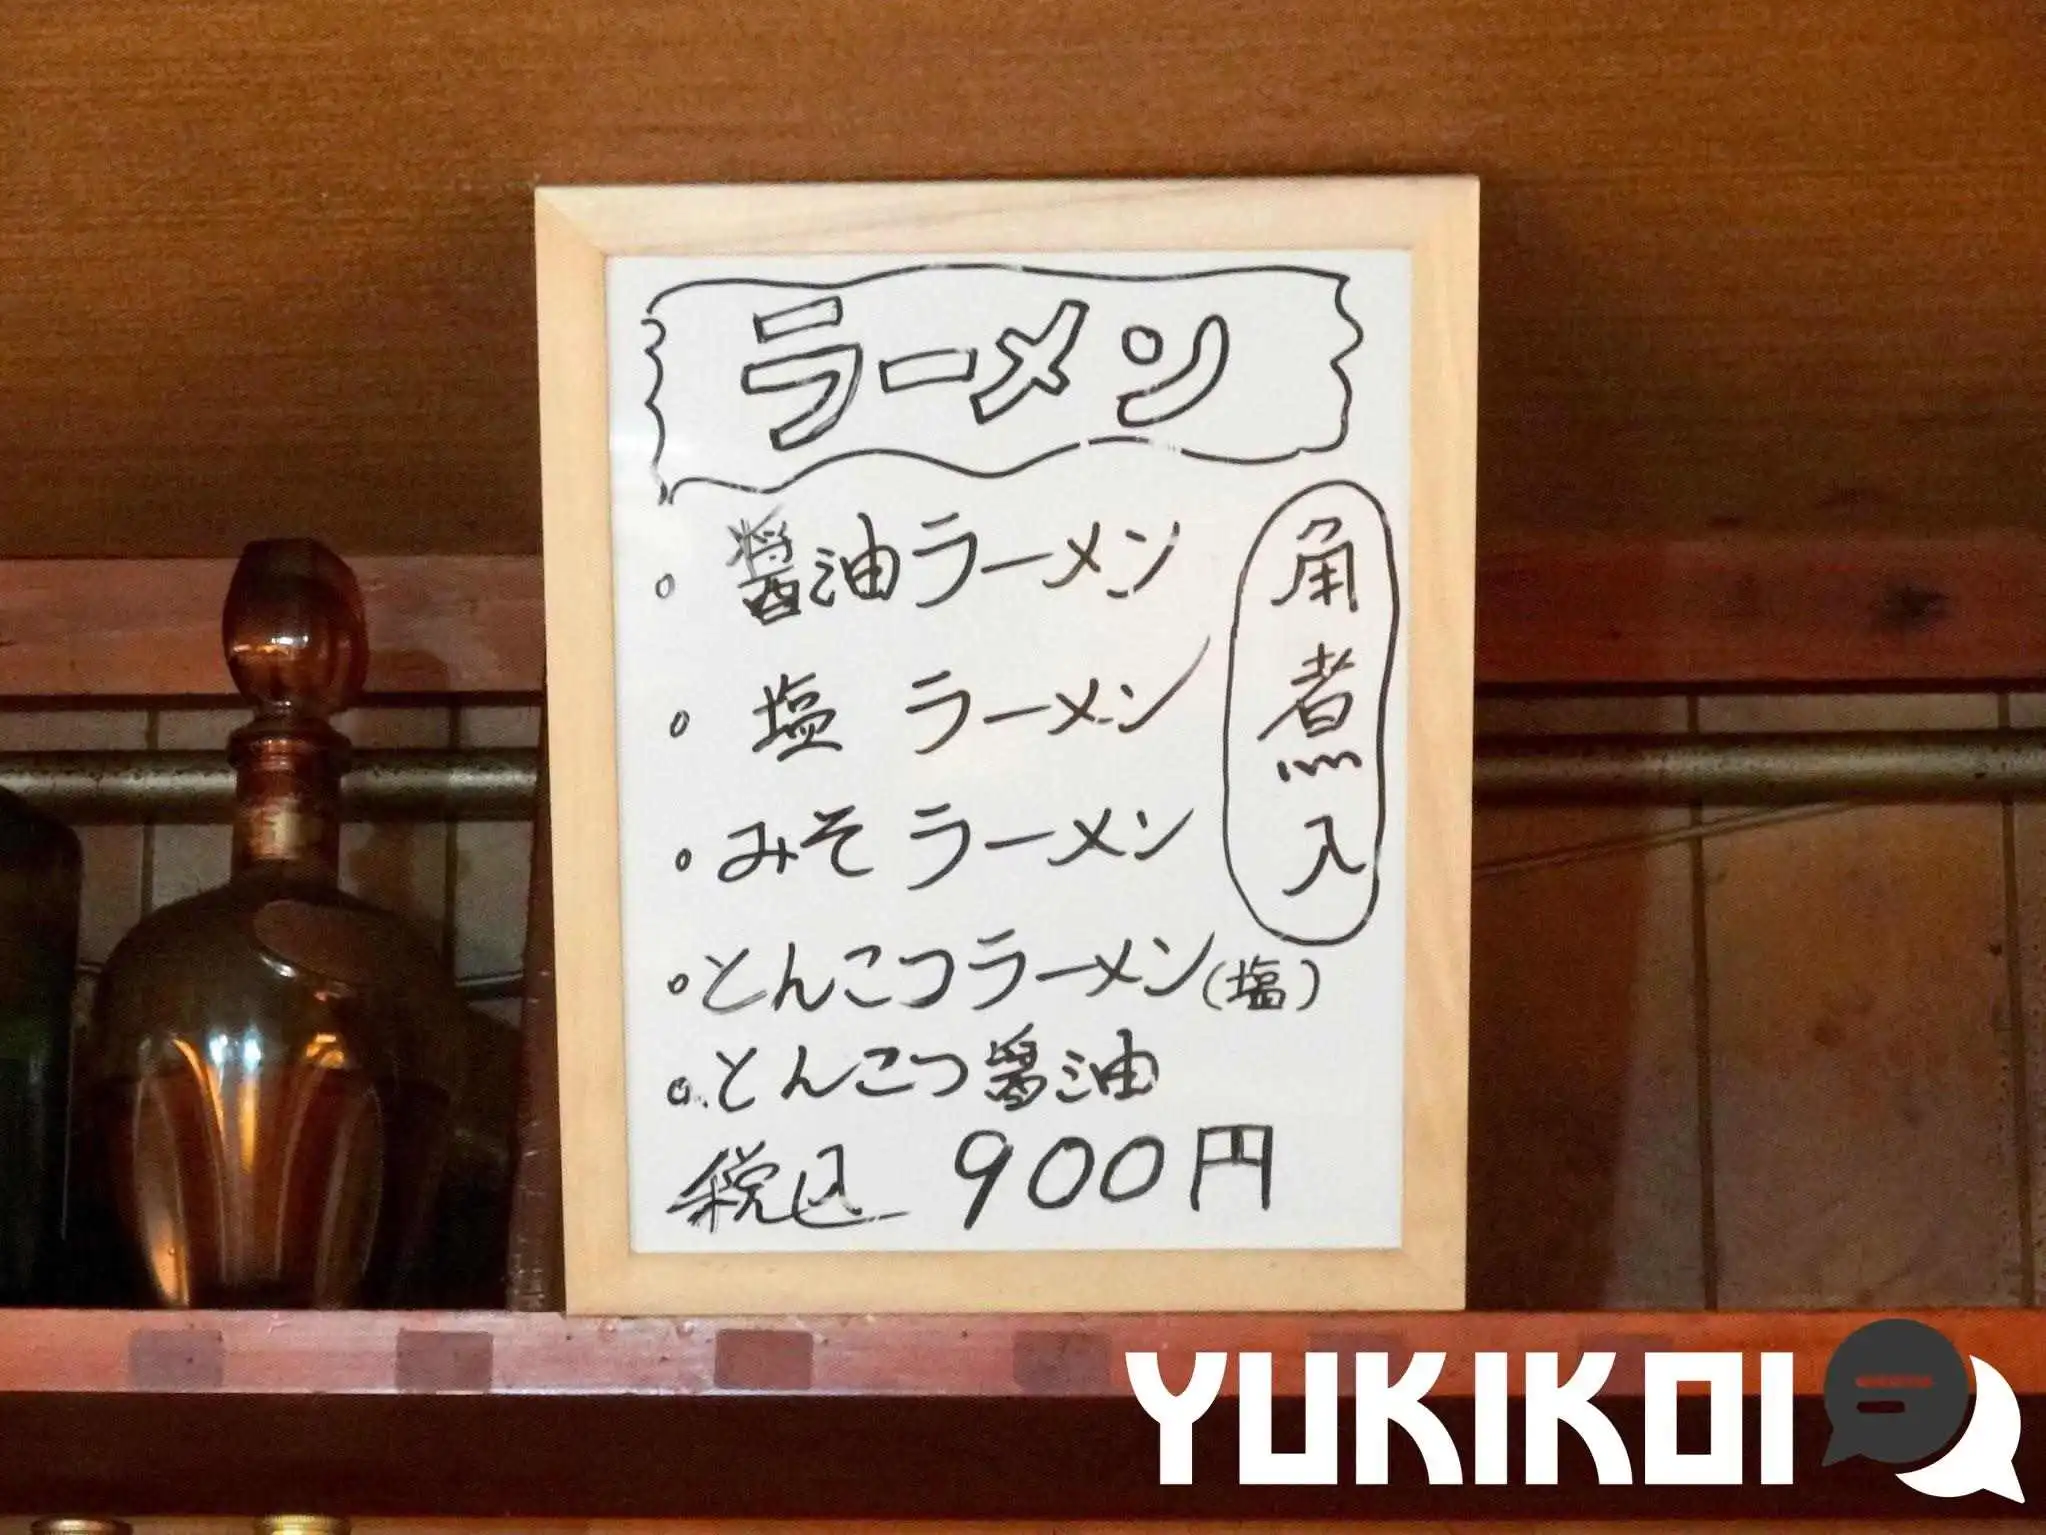 ラーメン
。醤油ラーメン
。塩 ラーメン
。みそ ラーメン
。とんこつラーメン(塩)
。とんこつ醤油
税込 900円
角煮入
YUKIKOI